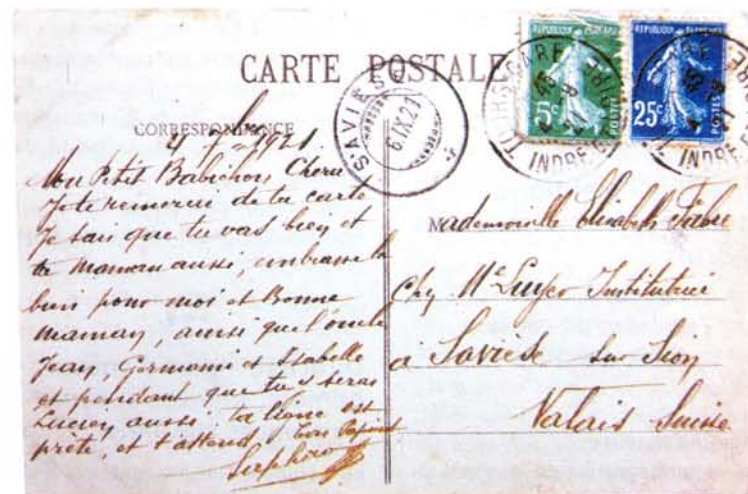 CARTE POSTALE
CORRESPONDANCE
4 1921
Mon Petit Babichon Cheri
Je te remercie de ta carte
Je sais que tu vas bien et
ta maman aussi, embrasse la
bien pour moi et Bonne
maman, ainsi que l'oncle
Jean, Germaine et Isabelle
et pendant que tu y seras
Lucien aussi, ta ligne est
prête, et t'attend, ton
SAVIÈSE
6.IX.21
RÉPUBLIQUE FRANÇAISE
5c
POSTES
RÉPUBLIQUE FRANÇAISE
25c
POSTES
TOURS GARE
INDRE
INDRE
Mademoiselle Elisabeth Fabre
Chez Mle Luyer Institutrice
à Savièse sur Sion
Valais Suisse